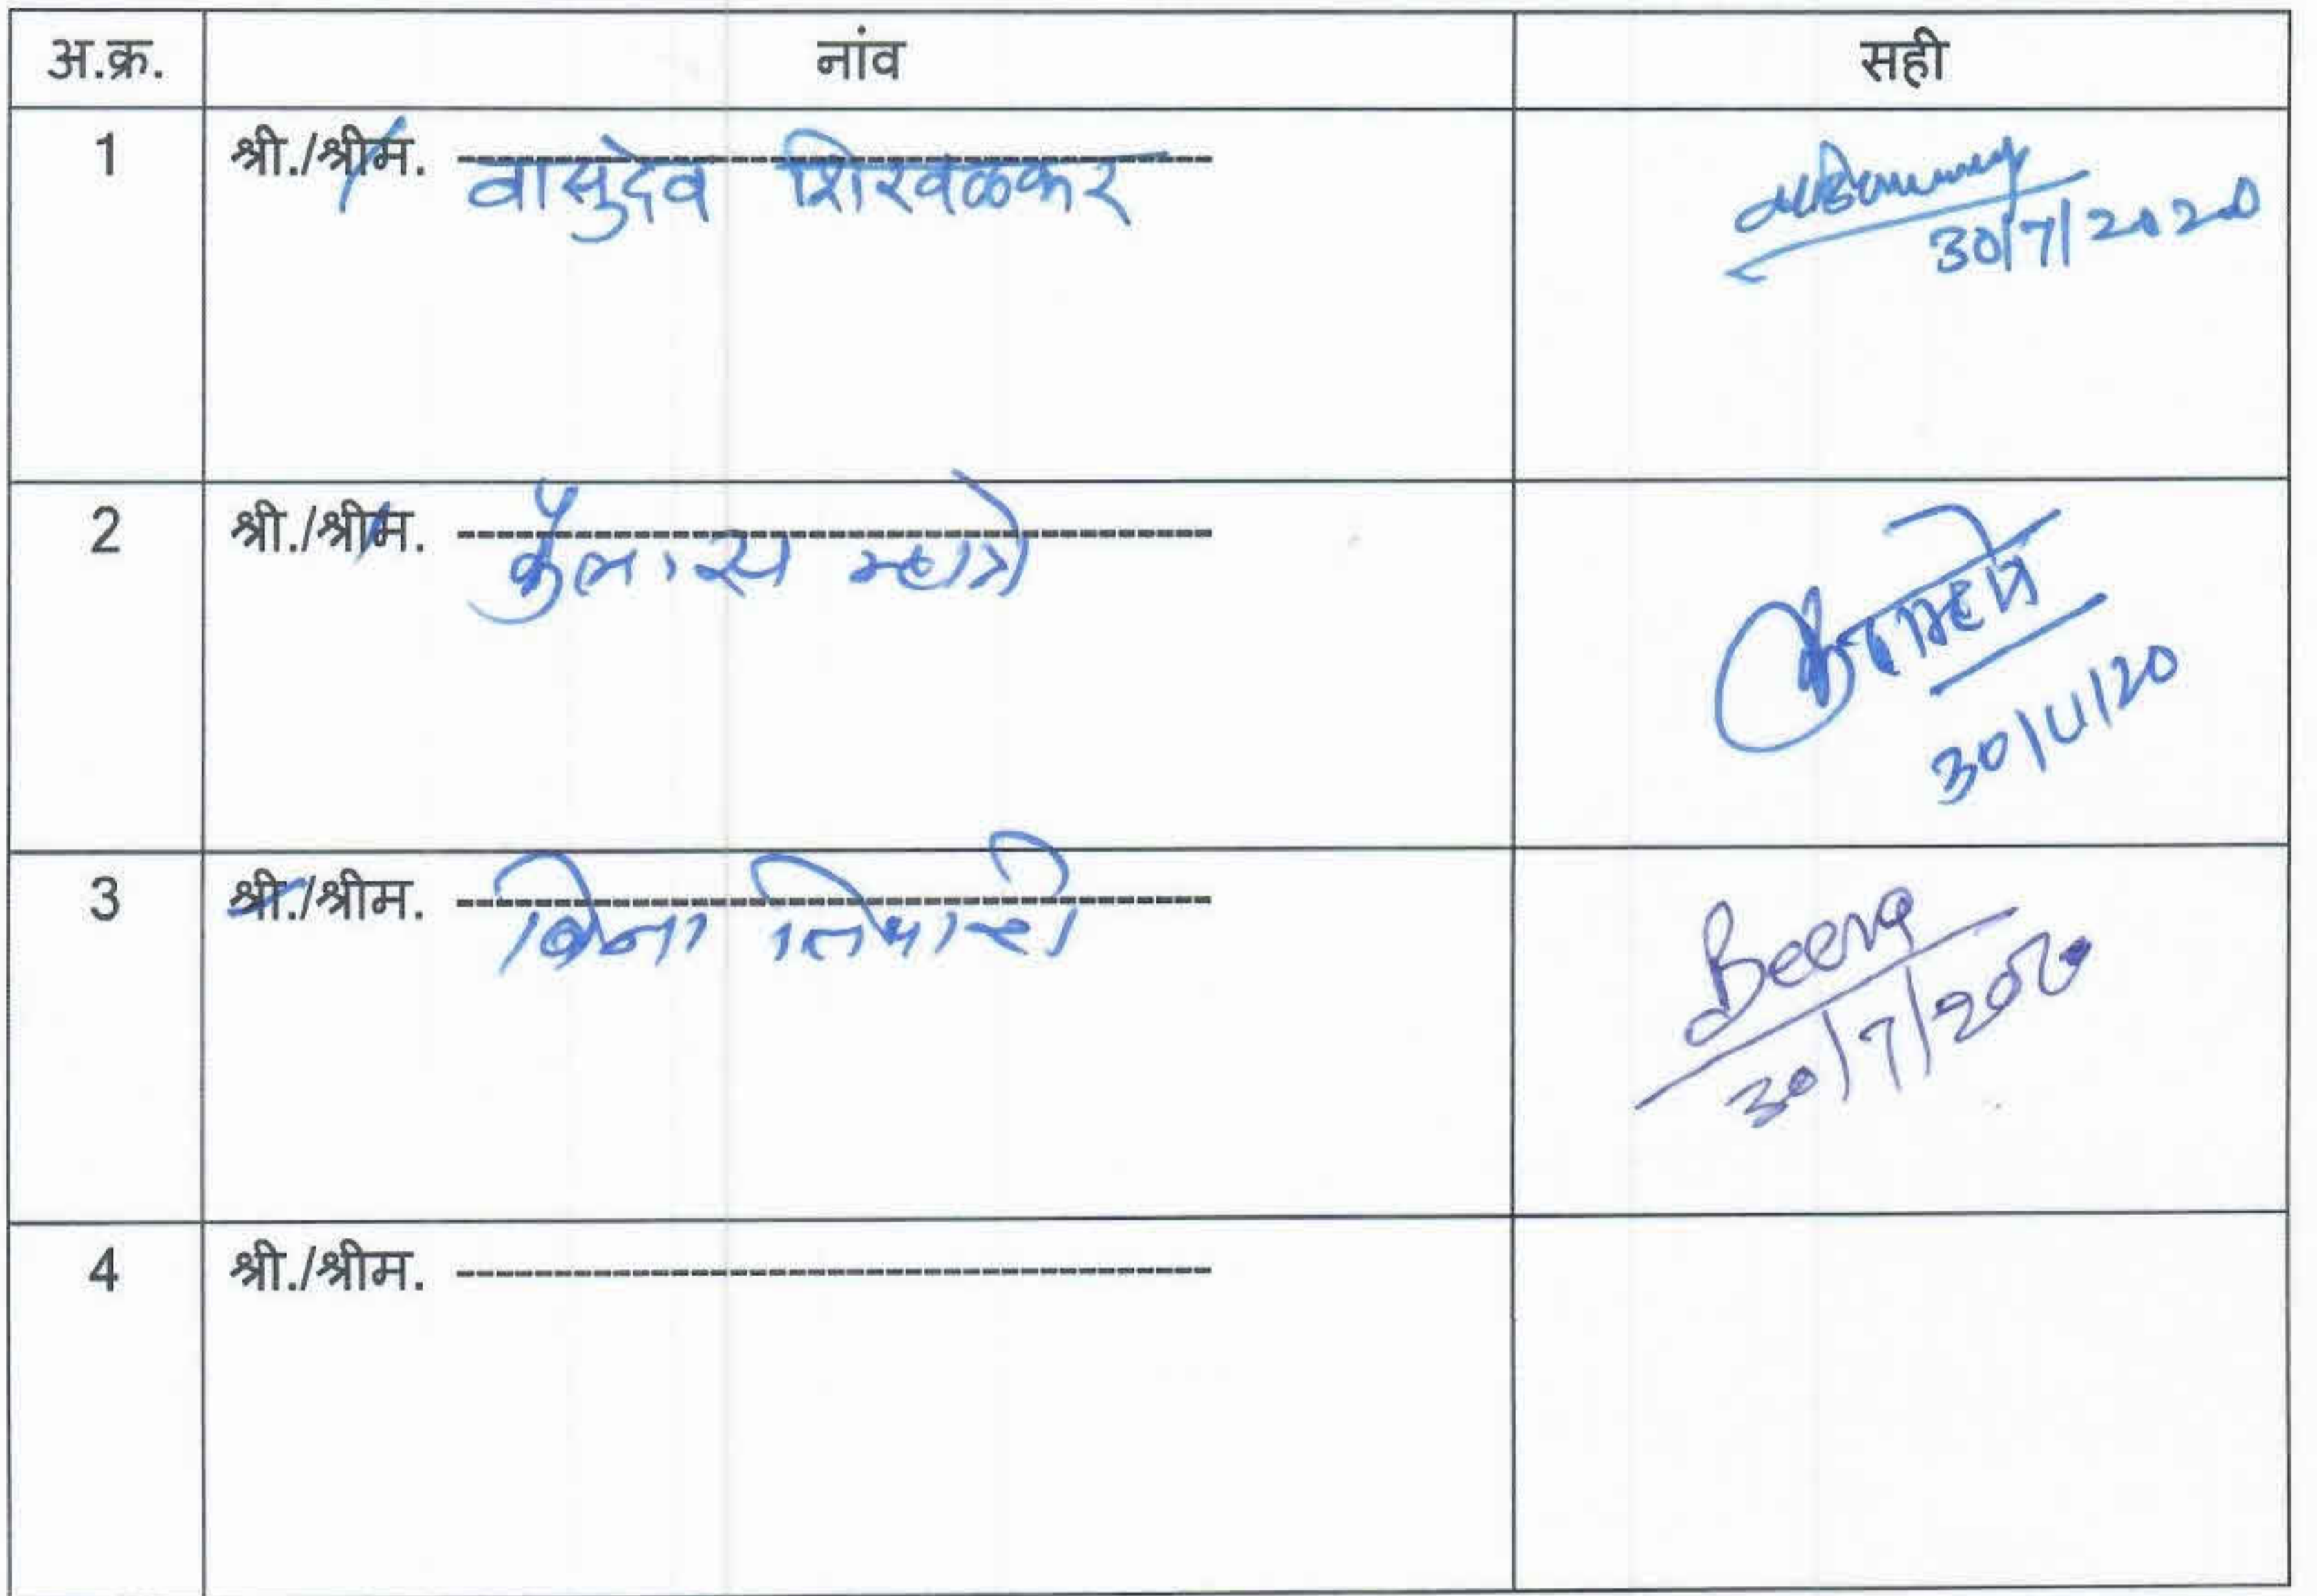 अ.क्र. नांव सही
1 श्री./श्रीम. वासुदेव शिरवळकर
30/7/2020
2 श्री./श्रीम. कैलास म्हात्रे
म्हात्रे
30/७/20
3 श्री./श्रीम. बिना तिवारी
Beena
30/7/2020
4 श्री./श्रीम. ----------------------------------------